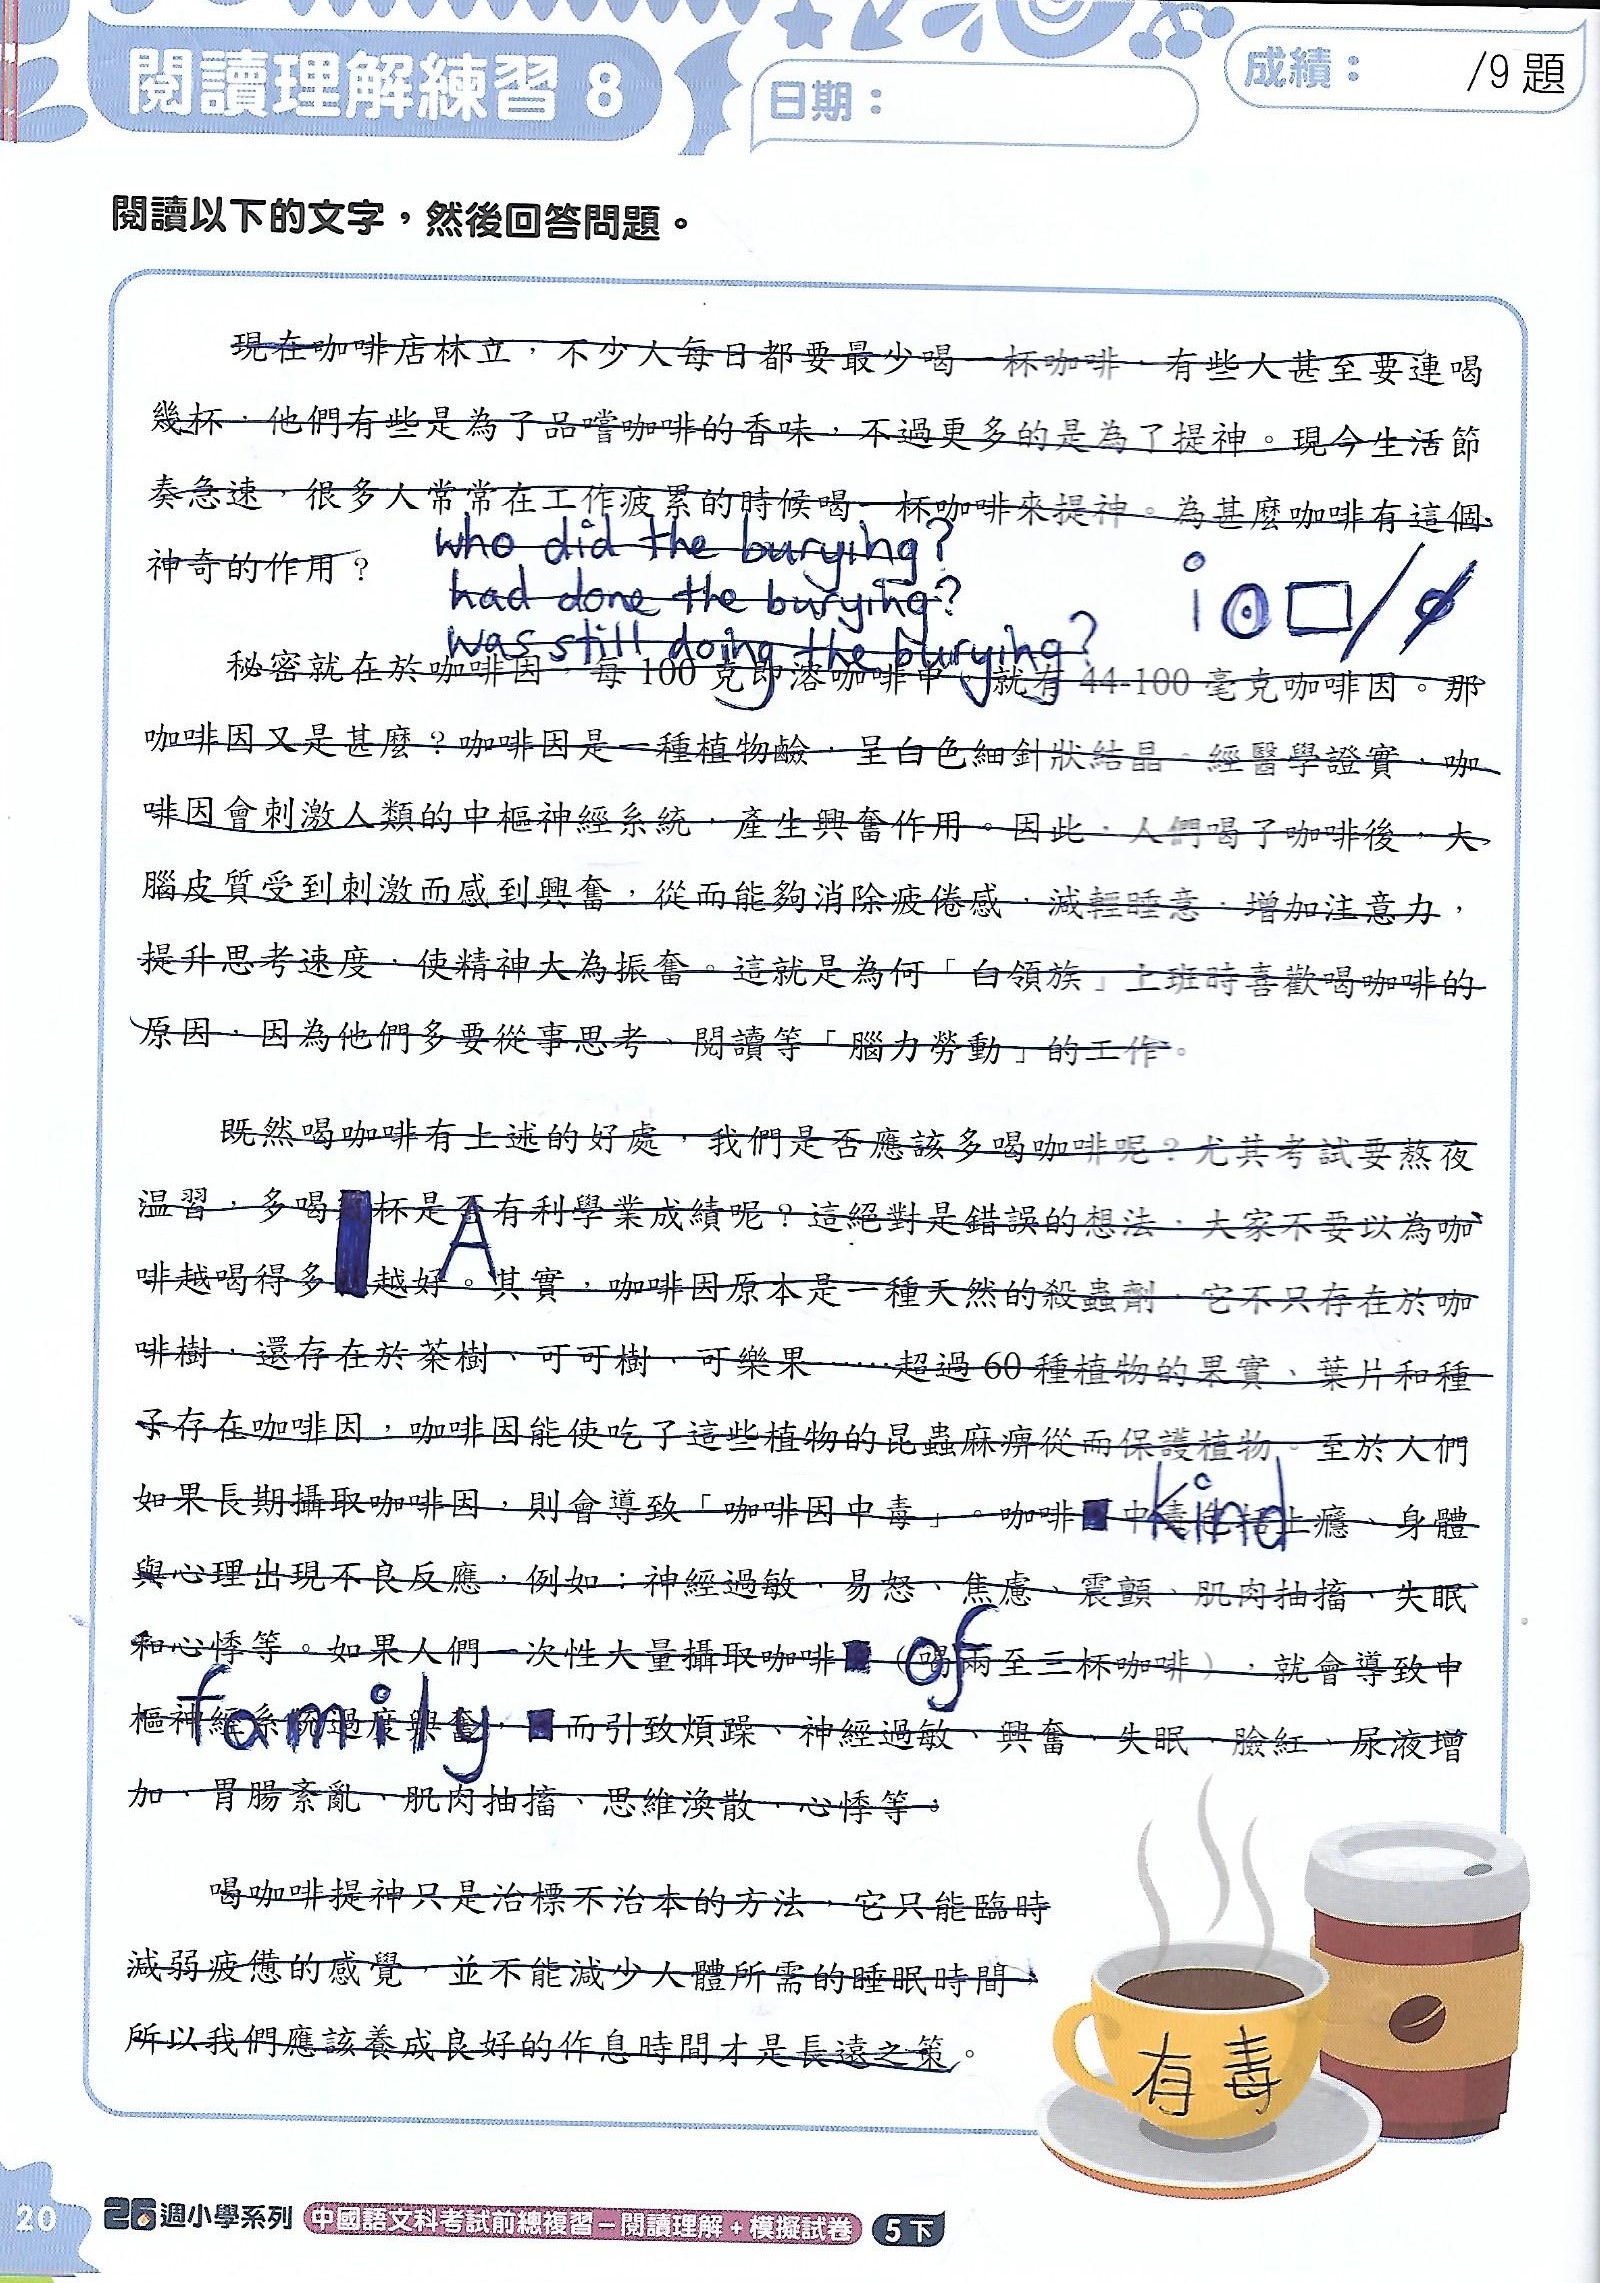 閱讀理解練習 8
日期：
成績： /9 題
閱讀以下的文字，然後回答問題。
現在咖啡店林立，不少人每日都要最少喝一杯咖啡，有些人甚至要連喝
幾杯，他們有些是為了品嚐咖啡的香味，不過更多的是為了提神。現今生活節
奏急速，很多人常常在工作疲累的時候喝一杯咖啡來提神。為甚麼咖啡有這個
神奇的作用？
who did the burying?
had done the burying?
was still doing the burying?
秘密就在於咖啡因，每 100 克即溶咖啡中，就有 44-100 毫克咖啡因。那
咖啡因又是甚麼？咖啡因是一種植物鹼，呈白色細針狀結晶。經醫學證實，咖
啡因會刺激人類的中樞神經系統，產生興奮作用。因此，人們喝了咖啡後，大
腦皮質受到刺激而感到興奮，從而能夠消除疲倦感，減輕睡意，增加注意力，
提升思考速度，使精神大為振奮。這就是為何「白領族」上班時喜歡喝咖啡的
原因，因為他們多要從事思考、閱讀等「腦力勞動」的工作。
既然喝咖啡有上述的好處，我們是否應該多喝咖啡呢？尤其考試要熬夜
温習，多喝杯是否有利學業成績呢？這絕對是錯誤的想法，大家不要以為咖
A
啡越喝得多越好。其實，咖啡因原本是一種天然的殺蟲劑，它不只存在於咖
啡樹，還存在於茶樹、可可樹、可樂果……超過 60 種植物的果實、葉片和種
子存在咖啡因，咖啡因能使吃了這些植物的昆蟲麻痹從而保護植物。至於人們
kind
如果長期攝取咖啡因，則會導致「咖啡因中毒」。咖啡中毒包括上癮、身體
與心理出現不良反應，例如：神經過敏、易怒、焦慮、震顫、肌肉抽搐、失眠
of
和心悸等。如果人們一次性大量攝取咖啡（喝兩至三杯咖啡），就會導致中
family
樞神經系統過度興奮，而引致煩躁、神經過敏、興奮、失眠、臉紅、尿液增
加、胃腸紊亂、肌肉抽搐、思維渙散、心悸等。
喝咖啡提神只是治標不治本的方法，它只能臨時
減弱疲憊的感覺，並不能減少人體所需的睡眠時間，
所以我們應該養成良好的作息時間才是長遠之策。
有毒
20 26週小學系列 中國語文科考試前總複習－閱讀理解＋模擬試卷 5下